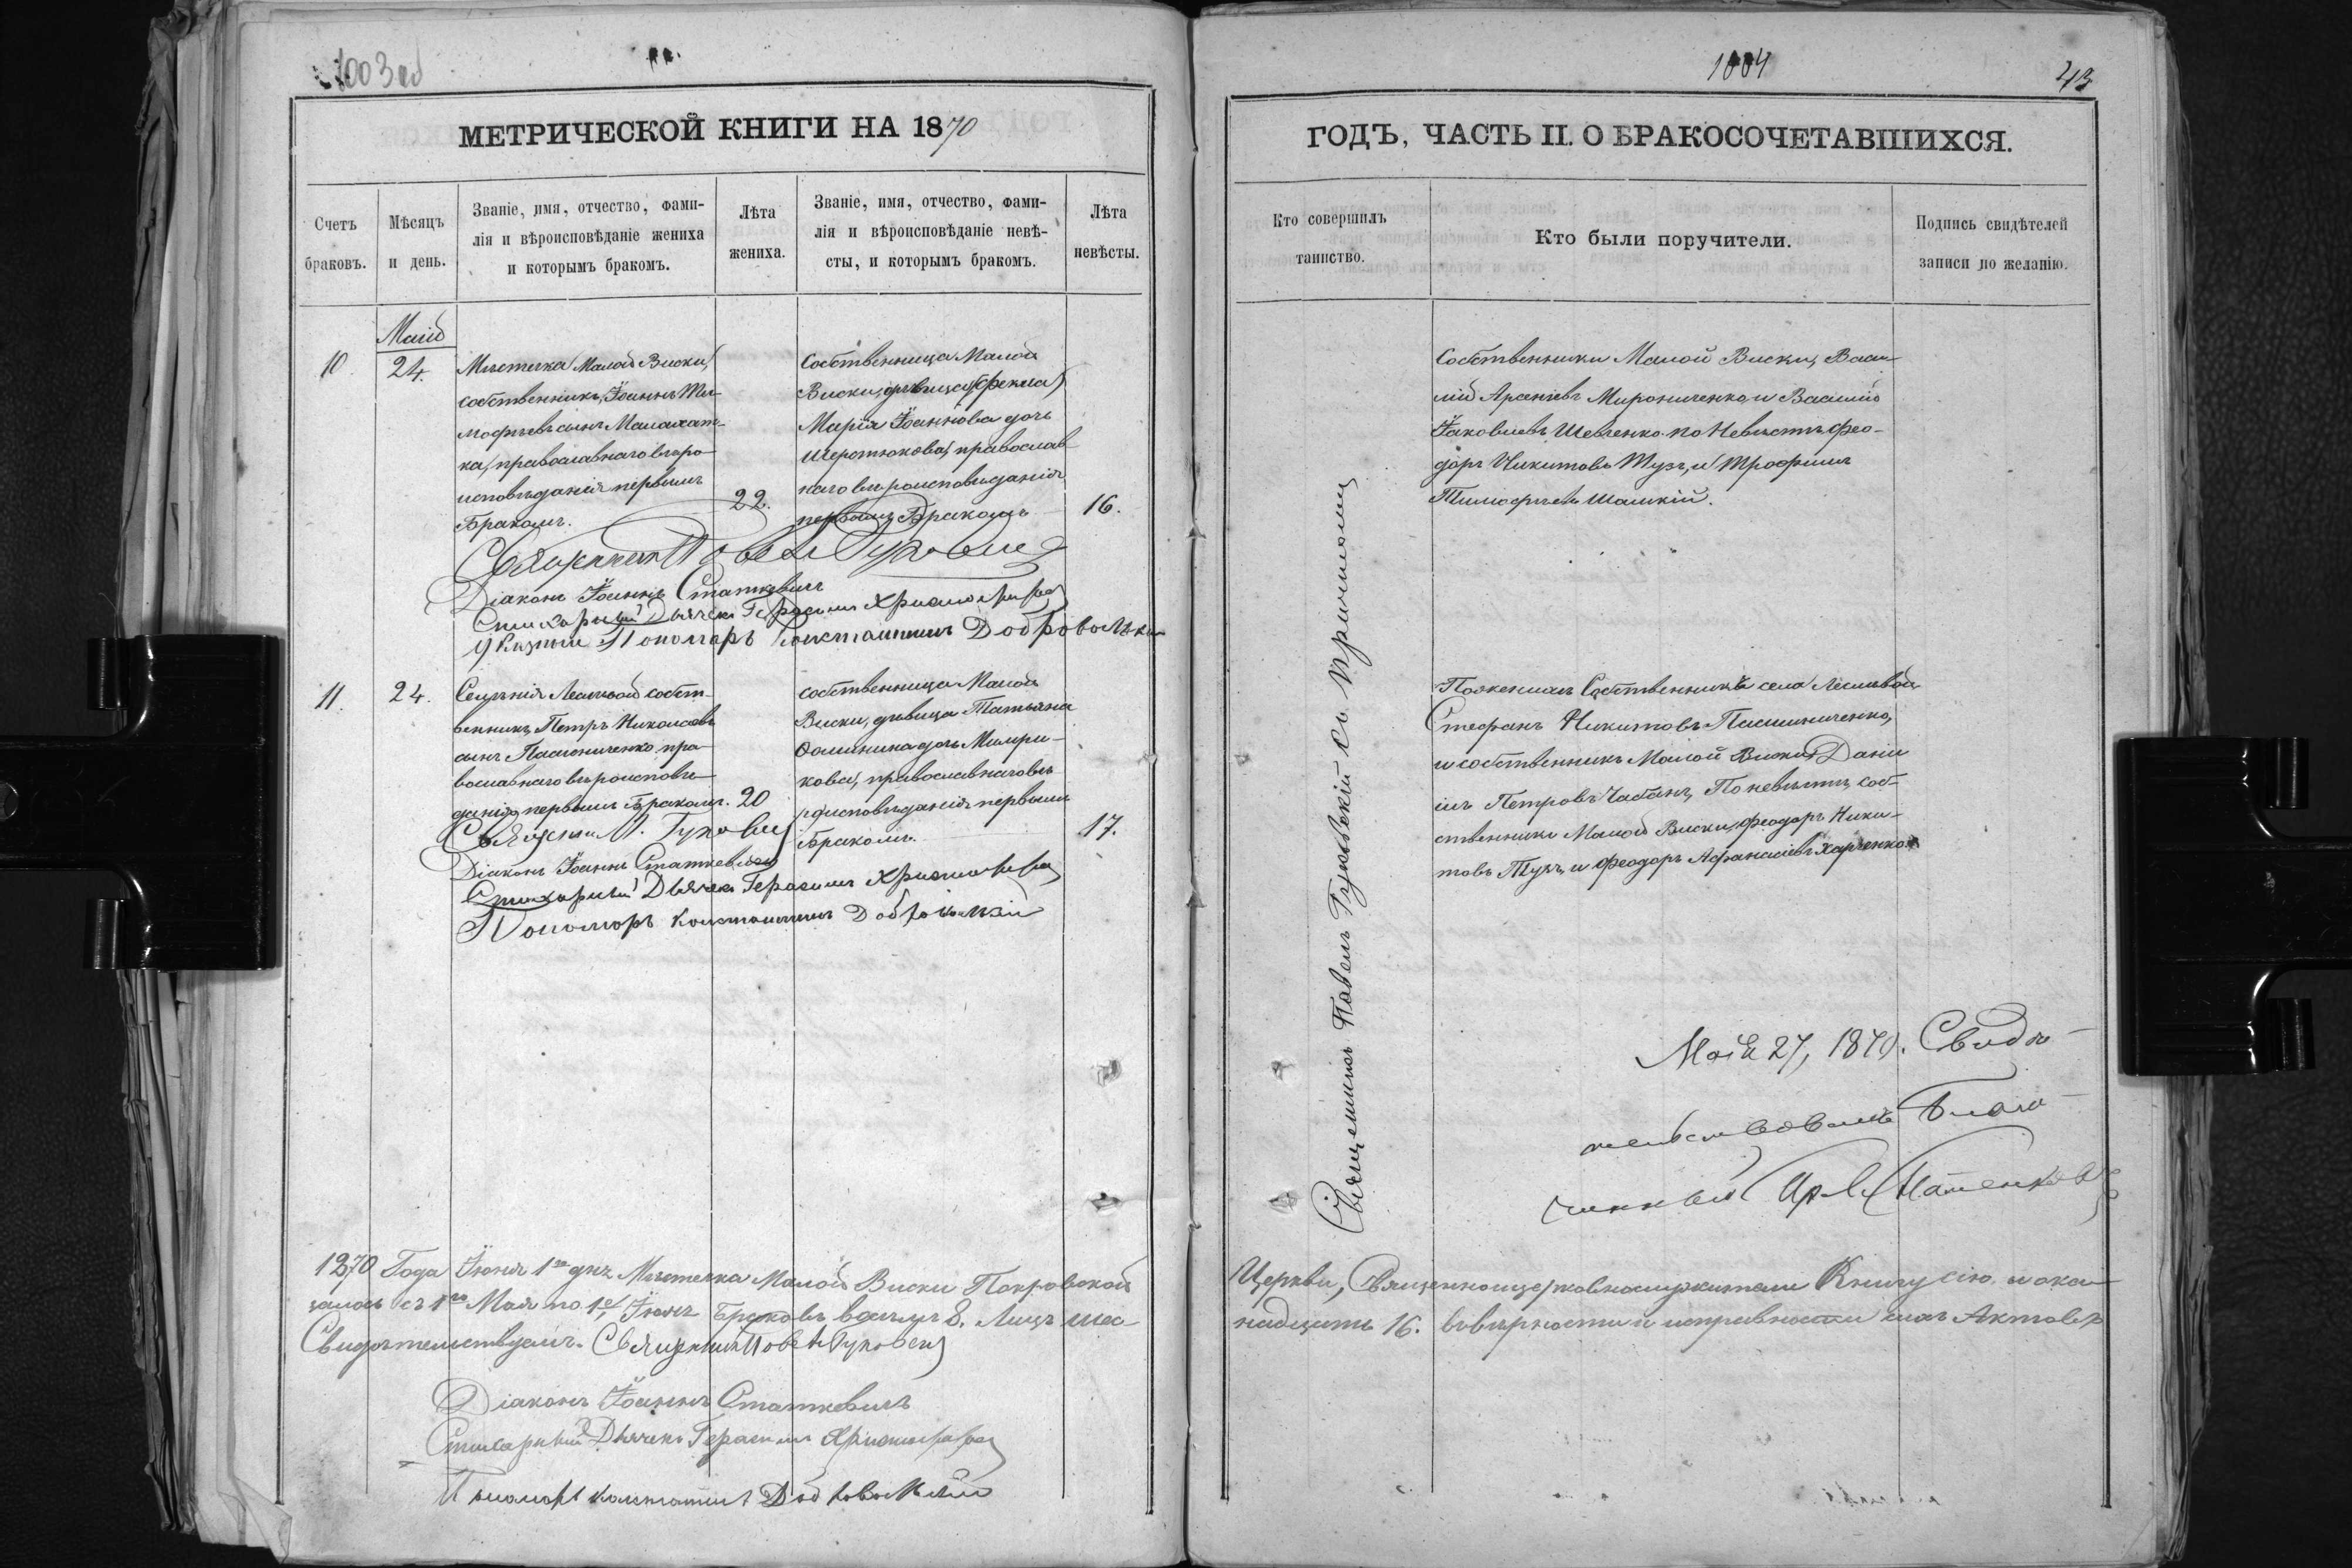 1003 об
МЕТРИЧЕСКОЙ КНИГИ НА 1870
Счетъ браковъ.
Мѣсяцъ и день.
Званіе, имя, отчество, фами-
лія и вѣроисповѣданіе жениха
и которымъ бракомъ.
Лѣта жениха.
Званіе, имя, отчество, фами-
лія и вѣроисповѣданіе невѣ-
сты, и которымъ бракомъ.
Лѣта невѣсты.
Маій
10. 24.
Мѣстечка Малой Виски,
собственникъ, Іоаннъ Ти-
мофѣевъ сынъ
православнаго вѣро-
исповѣданія первымъ
Бракомъ.
22.
Собственница Малой
Виски, дѣвица
Марія Іоаннова дочь
православ
наго вѣроисповѣданія
первымъ Бракомъ
16.
Священникъ Павелъ Гуковскій
Діаконъ Іоаннъ Статкевичъ
Стихарный Дьячекъ Герасимъ
Пономарь Константинъ Добровольскій
11. 24.
собст-
венникъ, Петръ Николаевъ
сынъ пра-
вославнаго вѣроисповѣ-
данія, первымъ Бракомъ.
20
собственница Малой
Виски, дѣвица Татьяна
дочь
православнаго вѣ-
роисповѣданія первымъ
Бракомъ.
17.
Священникъ П. Гуковскій
Діаконъ Іоаннъ Статкевичъ
Стихарный Дьячекъ Герасимъ
Пономарь Константинъ Добровольскій
1870 Года Іюня 1го дня Мѣстечка Малой Виски Покровской
съ 1го Мая по 1е Іюня Браковъ восемь 8. Лицъ шес
Свидѣтельствуемъ. Священникъ Павелъ Гуковскій
Діаконъ Іоаннъ Статкевичъ
Стихарный Дьячекъ Герасимъ
Пономарь Константинъ Добровольскій
1004
43
ГОДЪ, ЧАСТЬ II. О БРАКОСОЧЕТАВШИХСЯ.
Кто совершилъ таинство.
Кто были поручители.
Подпись свидѣтелей
записи по желанію.
Священникъ Павелъ Гуковскій съ причтомъ
Собственники Малой Виски, Васи-
лій Арсеніевъ Мирониченко и Василій
Іаковлевъ Шевченко. по Невѣстѣ Фео-
доръ Никитовъ Тузъ, и Трофимъ
Тимофѣевъ
По женихѣ Собственникъ села
Стефанъ Никитовъ
и собственникъ Малой Виски Дані-
илъ Петровъ Чабанъ, По невѣстѣ, соб-
ственники Малой Виски, Феодоръ Ники-
товъ Тузъ, и Феодоръ Афанасіевъ Харченко
Маія 27, 1870. Свидѣ-
тельствовалъ Благо-
чинный
Церкви, Священноцерковнослужители Книгу сію
надцать 16. въ вѣрности и исправности Актовъ